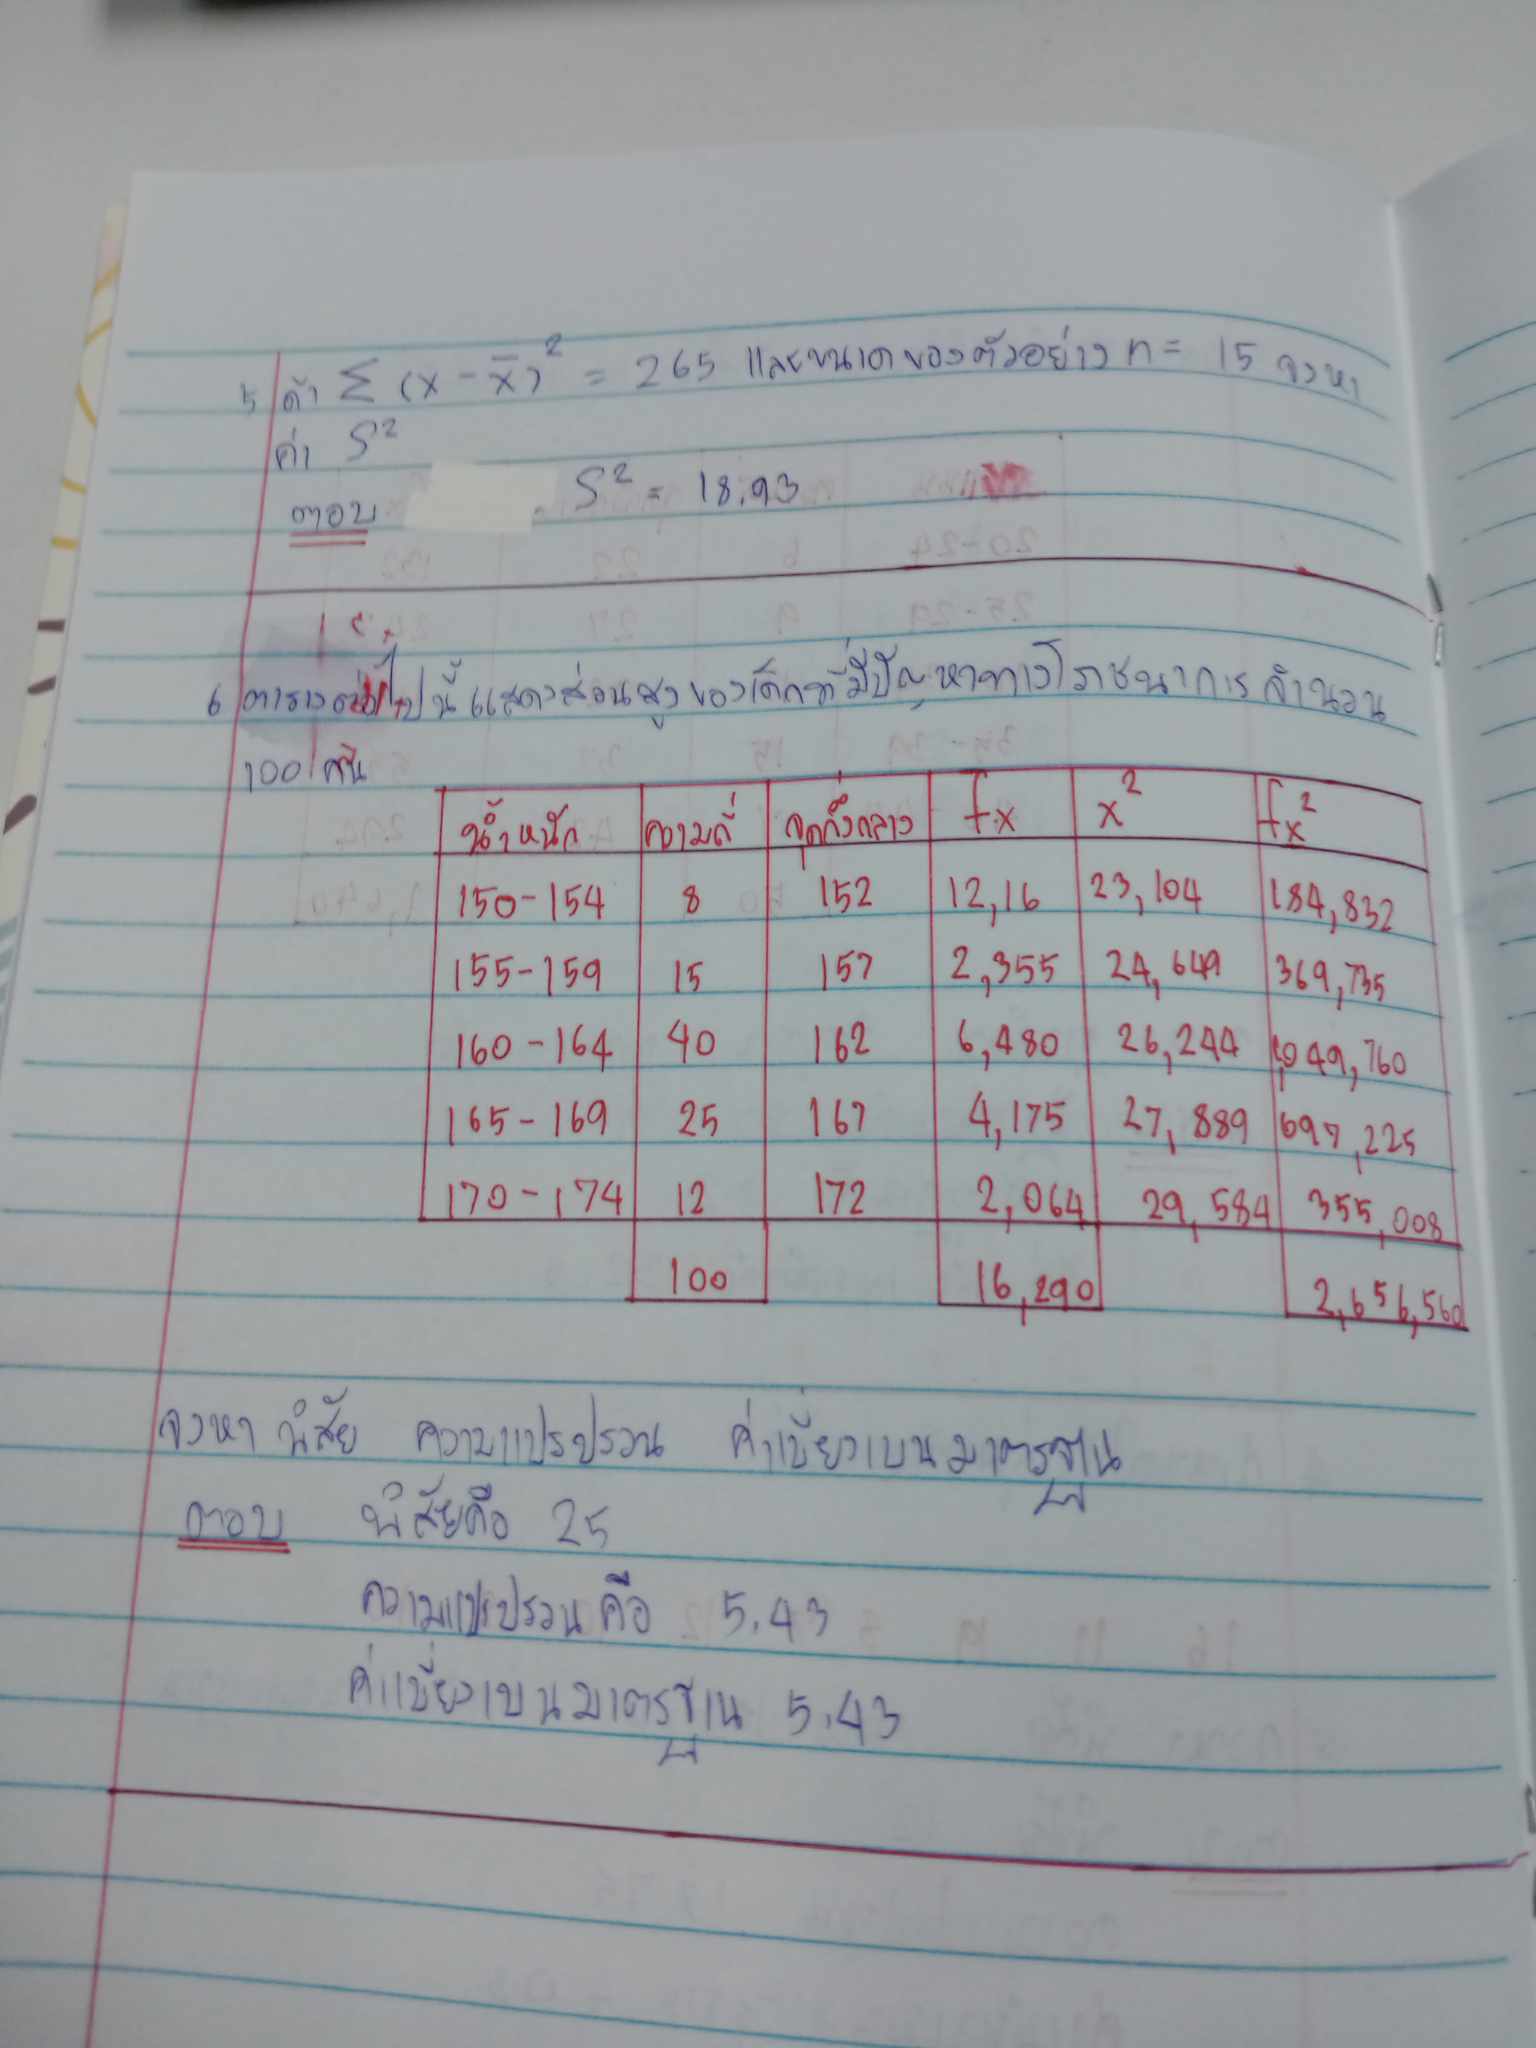 5 ถ้า Σ (x - x̄)² = 265 และขนาดของตัวอย่าง n = 15 จงหา
ค่า S²
ตอบ S² = 18.93
6 ตารางต่อไปนี้แสดงส่วนสูงของเด็กที่มีปัญหาทางโภชนาการ จำนวน
100 คน
น้ำหนัก ความถี่ จุดกึ่งกลาง fx x² fx²
150-154 8 152 12,16 23,104 184,832
155-159 15 157 2,355 24,649 369,735
160-164 40 162 6,480 26,244 1,049,760
165-169 25 167 4,175 27,889 697,225
170-174 12 172 2,064 29,584 355,008
100 16,290 2,656,560
จงหา พิสัย ความแปรปรวน ค่าเบี่ยงเบนมาตรฐาน
ตอบ พิสัยคือ 25
ความแปรปรวนคือ 5.43
ค่าเบี่ยงเบนมาตรฐาน 5.43